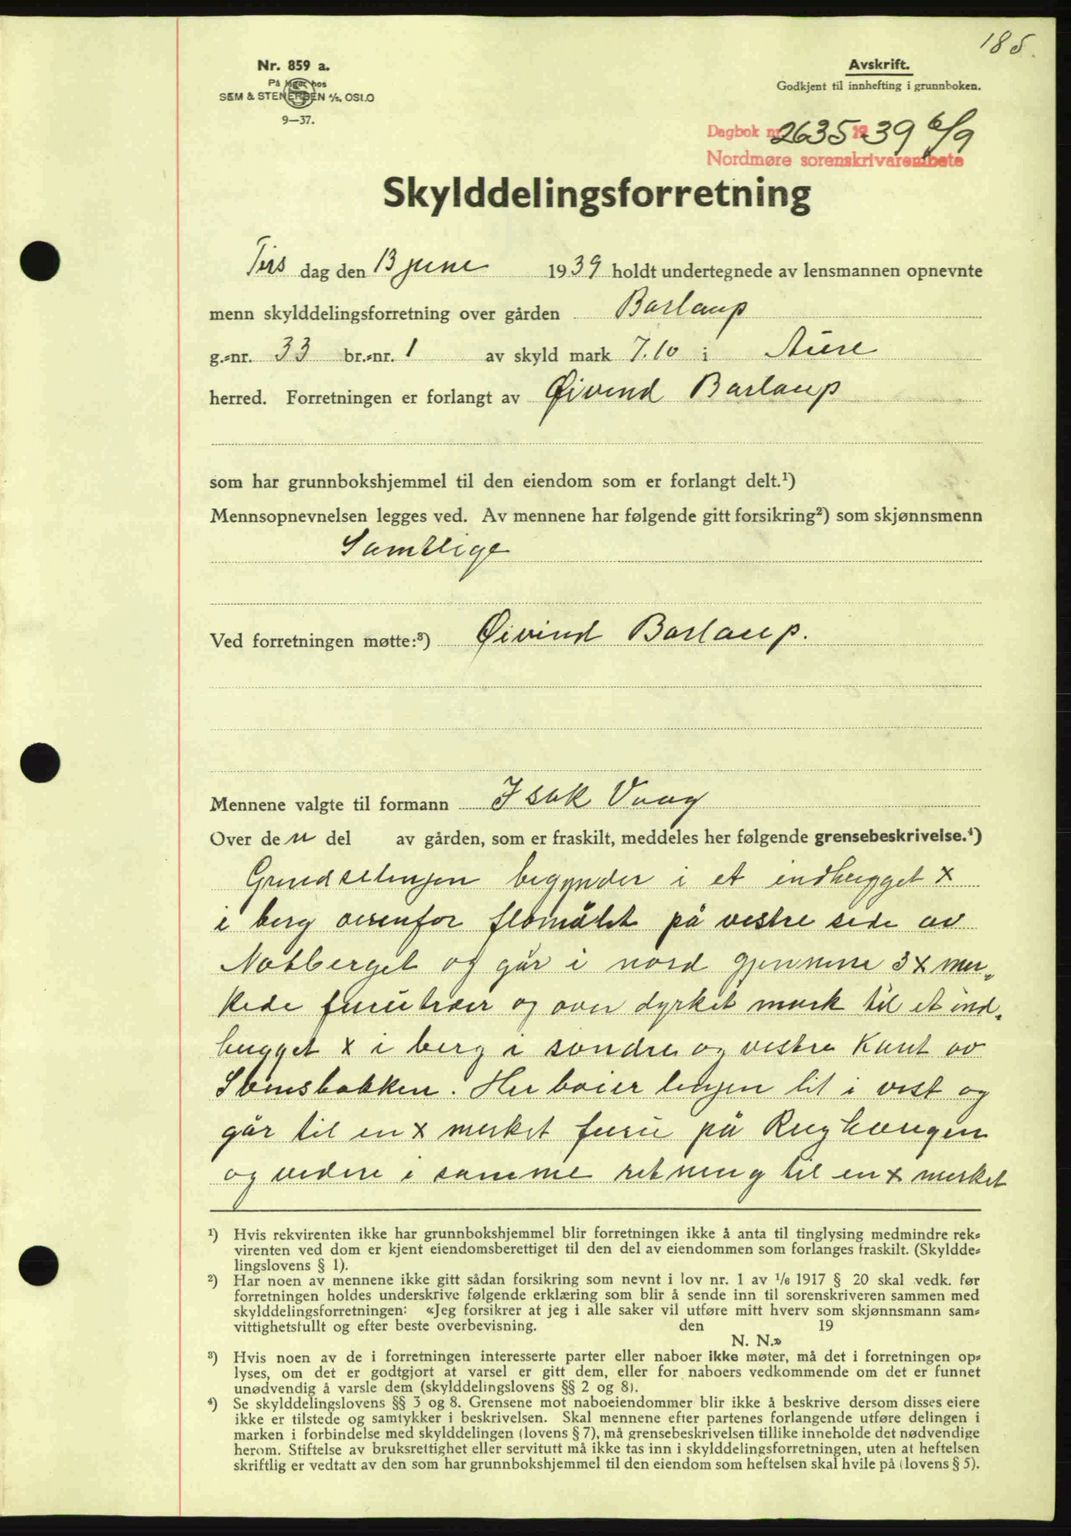 185.
Nr. 859 a.
På lager hos
SEM & STENERSEN A/S, OSLO
9—37.
Avskrift.
Godkjent til innhefting i grunnboken.
Dagbok nr. 2635 1939 6/9
Nordmøre sorenskrivarembete
Skylddelingsforretning
Tirs dag den 13 june 1939 holdt undertegnede av lensmannen opnevnte
menn skylddelingsforretning over gården Barlaup
g.-nr. 33 br.-nr. 1 av skyld mark 7.10 i Aure
herred. Forretningen er forlangt av Øivind Barlaup
som har grunnbokshjemmel til den eiendom som er forlangt delt.¹)
Mennsopnevnelsen legges ved. Av mennene har følgende gitt forsikring²) som skjønnsmenn
Samtlige
Ved forretningen møtte:³) Øivind Barlaup.
Mennene valgte til formann Isak Vaag
Over de n del av gården, som er fraskilt, meddeles her følgende grensebeskrivelse.⁴)
begynder i et indhugget x
i berg ovenfor flomålet på vestre side av
Notberget og går i nord gjennem 3 x mer-
kede furutrær og over dyrket mark til et ind-
hugget x i berg i søndre og vestre Kant av
. Her bøier linjen lit i vest og
går til en x merket furu på Rughaugen
og videre i samme retning til en x merket
¹) Hvis rekvirenten ikke har grunnbokshjemmel blir forretningen ikke å anta til tinglysing medmindre rek-
virenten ved dom er kjent eiendomsberettiget til den del av eiendommen som forlanges fraskilt. (Skyldde-
lingslovens § 1).
²) Har noen av mennene ikke gitt sådan forsikring som nevnt i lov nr. 1 av 1/6 1917 § 20 skal vedk. før
forretningen holdes underskrive følgende erklæring som blir å sende inn til sorenskriveren sammen med
skylddelingsforretningen: «Jeg forsikrer at jeg i alle saker vil utføre mitt hverv som skjønnsmann sam-
vittighetsfullt og efter beste overbevisning. den 19
N. N.»
³) Hvis noen av de i forretningen interesserte parter eller naboer ikke møter, må det i forretningen op-
lyses, om det er godtgjort at varsel er gitt dem, eller for naboers vedkommende om det er funnet
unødvendig å varsle dem (skylddelingslovens §§ 2 og 8).
⁴) Se skylddelingslovens §§ 3 og 8. Grensene mot naboeiendommer blir ikke å beskrive dersom disses eiere
ikke er tilstede og samtykker i beskrivelsen. Skal mennene efter partenes forlangende utføre delingen i
marken i forbindelse med skylddelingen (lovens § 7), må grensebeskrivelsen tillike inneholde det nødvendige
herom. Stiftelse av bruksrettighet eller servitutt må ikke tas inn i skylddelingsforretningen, uten at heftelsen
skriftlig er vedtatt av den som har grunnbokshjemmel til den eiendom som heftelsen skal hvile på (lovens § 5).